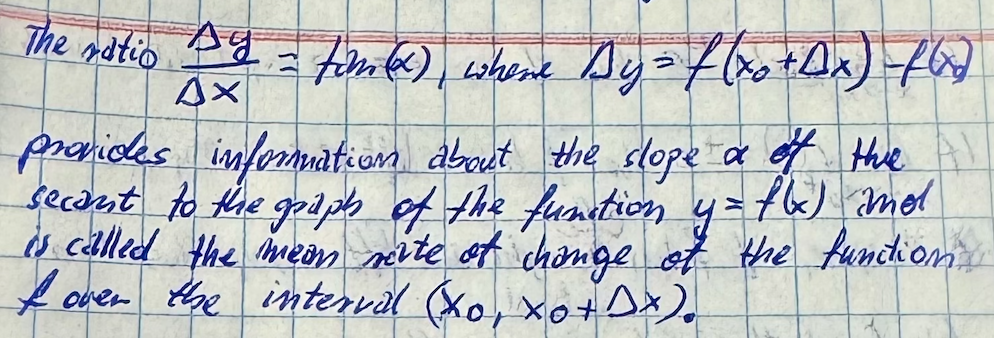 The ratio Δy/Δx = tan(α), where Δy = f(x₀+Δx) - f(x₀)
provides information about the slope α of the
secant to the graph of the function y = f(x) and
is called the mean rate of change of the function
f over the interval (x₀, x₀+Δx).